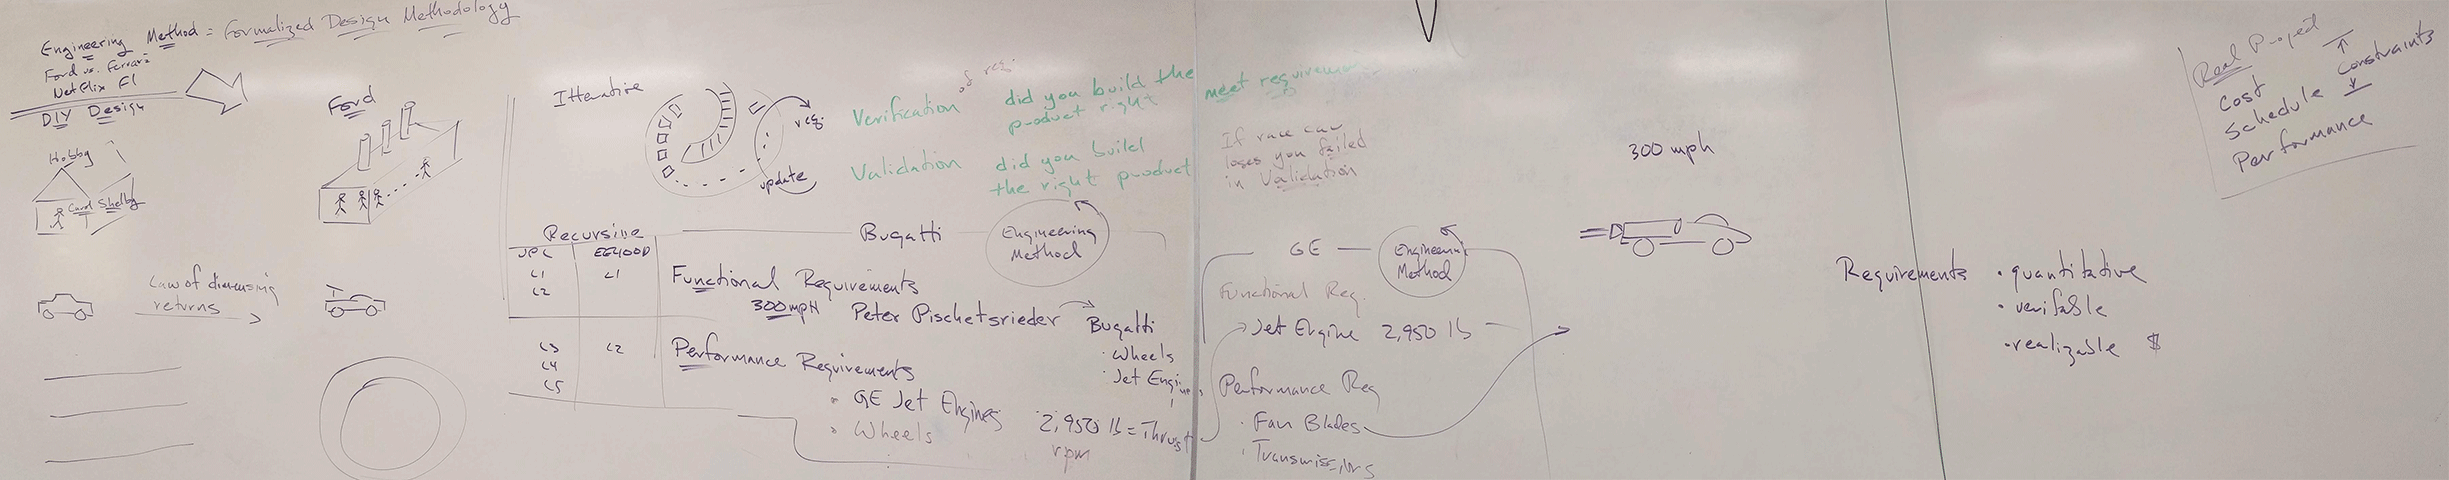 Engineering Method = Formalized Design Methodology
Ford vs. Ferrari
Netflix F1
DIY Design
Hobby
Carol Shelby
Ford
Law of dimensing
returns
Itterative
req.
update
of req.
Verification did you build the
product right
meet requirements
Validation did you build
the right product
If race car
loses you failed
in Validation
Recursive
JPL EE400D
L1 L1
L2
L3 L2
L4
L5
Bugatti
Engineering
Method
Functional Requirements
300mpH Peter Pischetsrieder Bugatti
Wheels
Jet Engines
Performance Requirements
GE Jet Engines 2,950 lb = Thrust
Wheels rpm
GE
Engineering
Method
Functional Req.
Jet Engine 2,950 lb
Performance Req
Fan Blades
Transmissions
300 mph
Requirements • quantitative
• verifable
• realizable $
Real Project
Cost
Schedule
Performance
Constraints